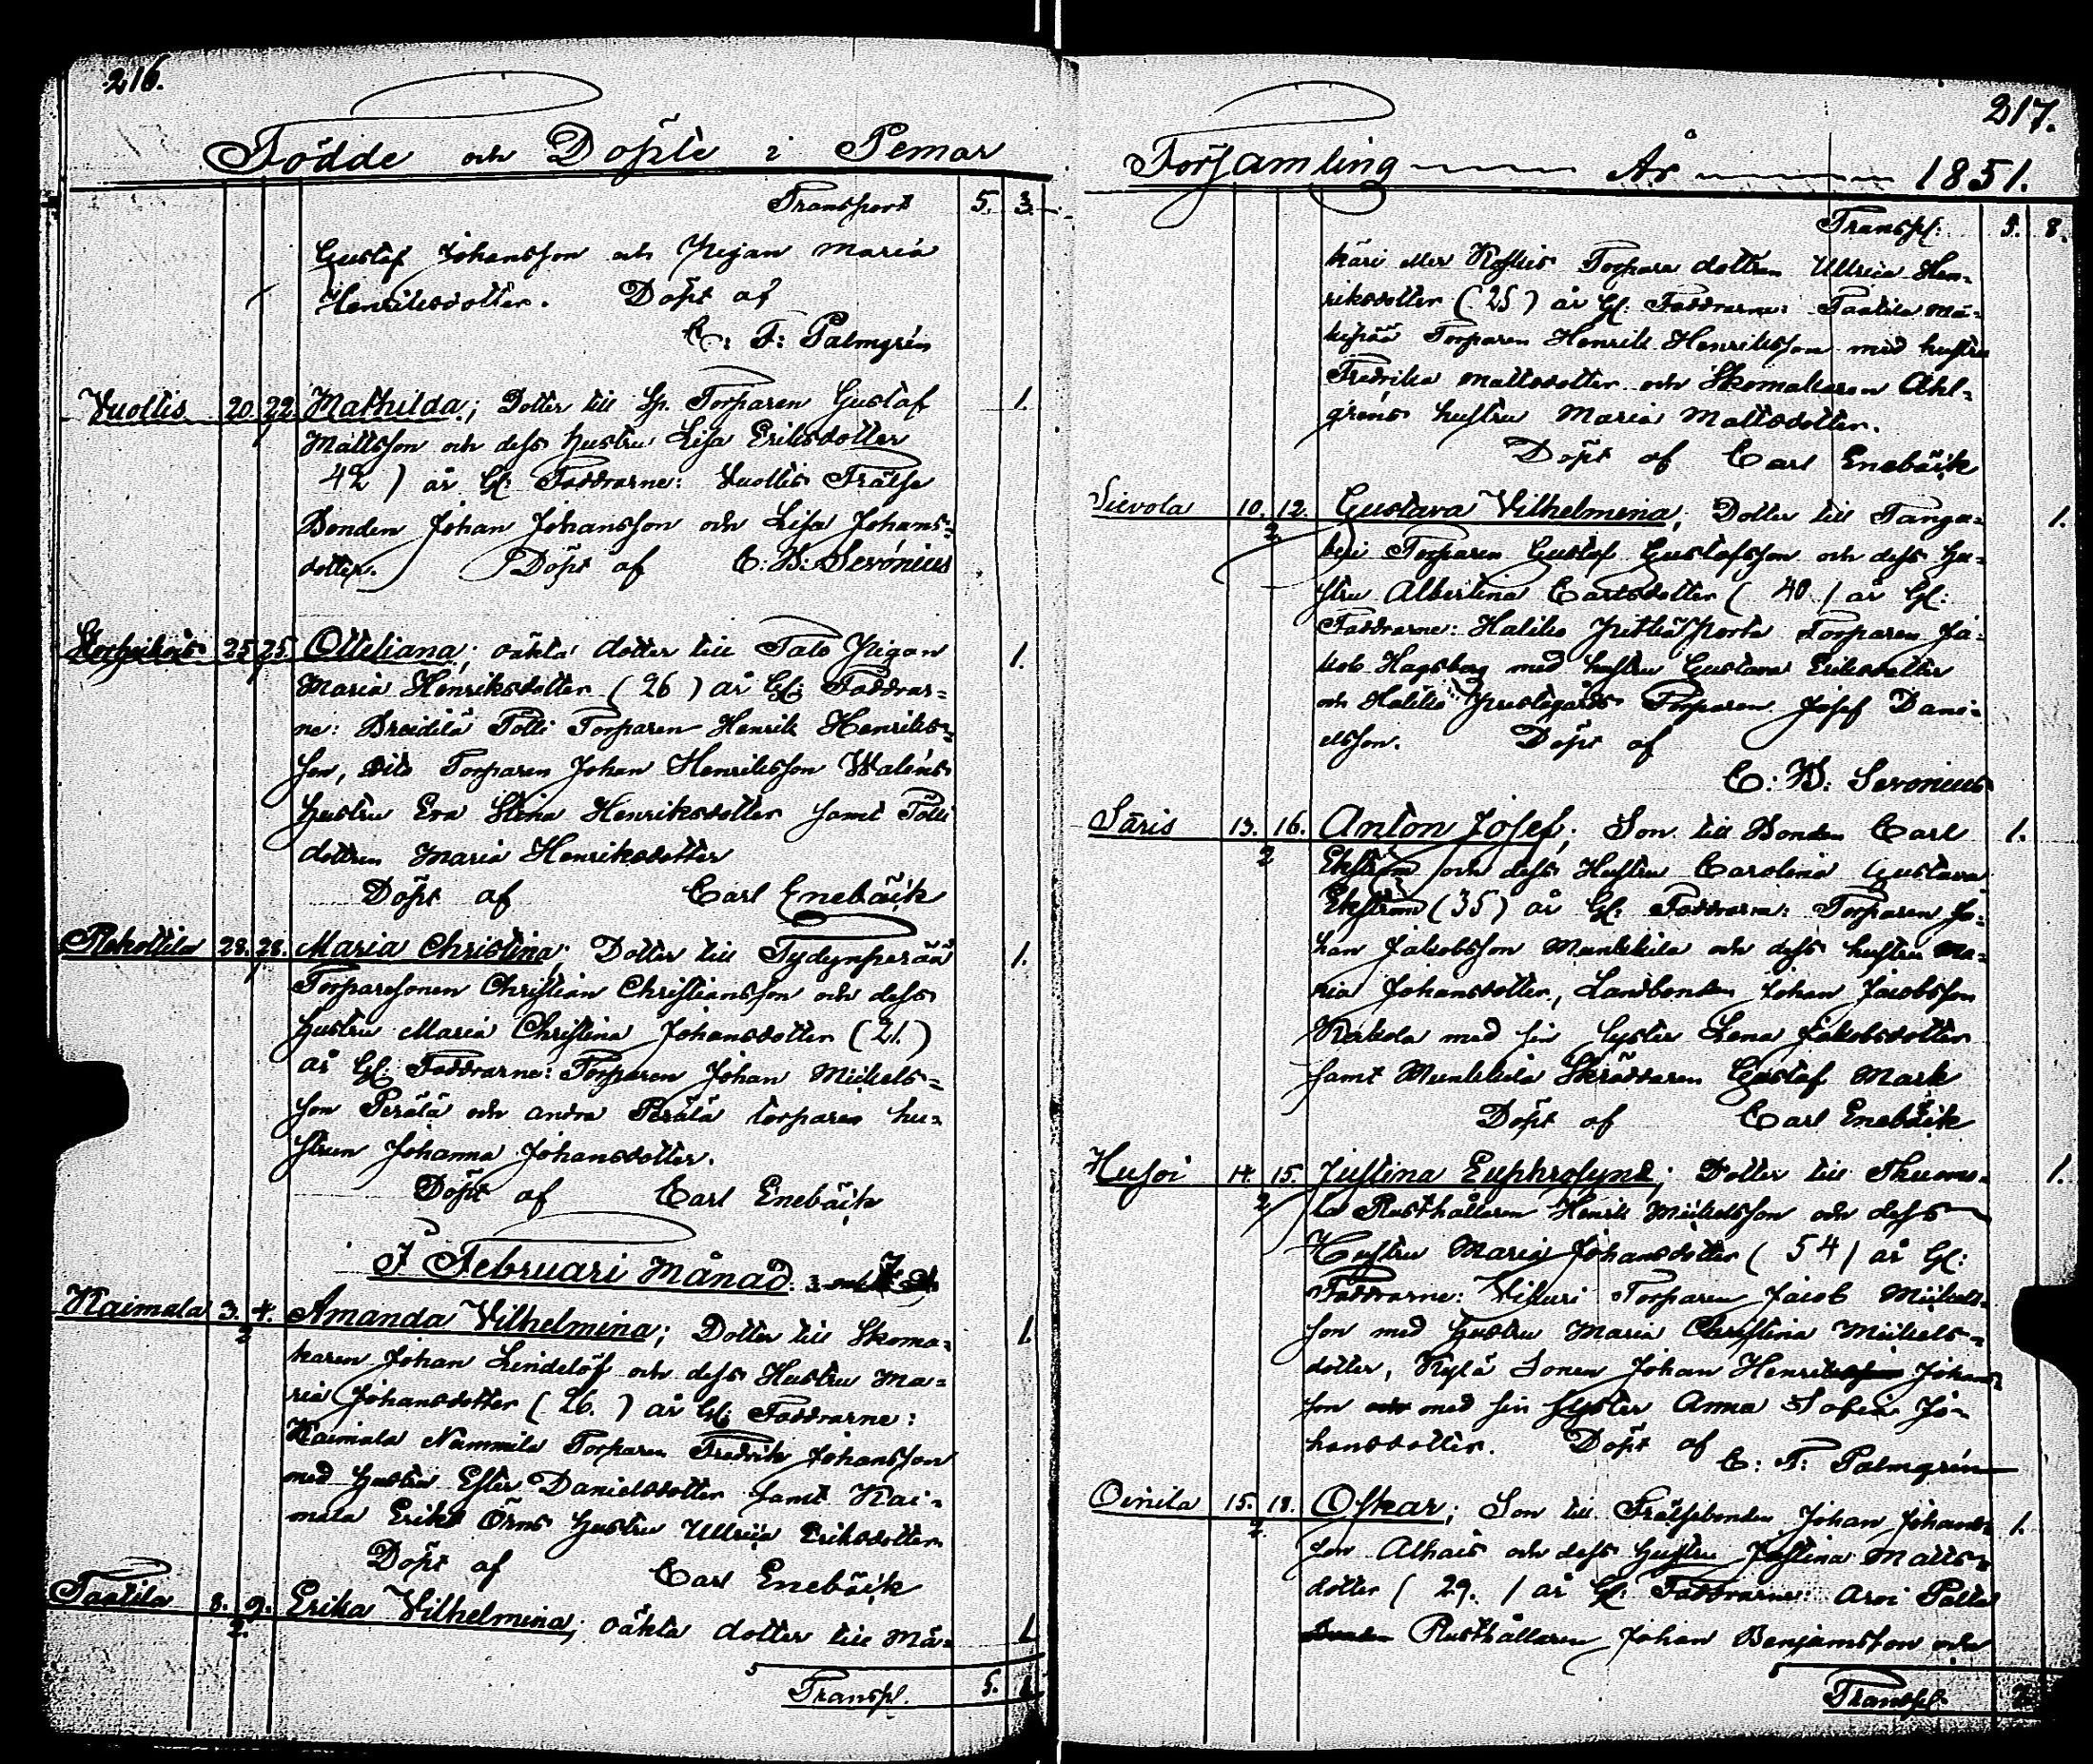 216.
Födde och Döpte i Pemar
Transport 5. 3.
Gustaf Johansson och Pigan Maria
Henriksdotter. Döpt af
C: F: Palmgrén
Vuollis 20. 22. Mathilda; Dotter till Sp. Torparen Gustaf 1.
Mattsson och dess hustru Lisa Eriksdotter
42) år Gl: Faddrarne: Vuollis Frälse
Bonden Johan Johansson och Lisa Johans-
dotter. Döpt af C: W: Seronius
25 25 Otteliana; oäkta dotter till Talo Pigan 1.
Maria Henriksdotter (26) år Gl: Faddrar-
ne: Breidilä Tolli Torparen Henrik Henriks-
son, dito Torparen Johan Henriksson Waléns
hustru Eva Stina Henriksdotter samt Tolli
dottren Maria Henriksdotter
Döpt af Carl Enebäck
Rekottila 28. 28. Maria Christina; Dotter till Tydynperää 1.
Torparesonen Christian Christiansson och dess
hustru Maria Christina Johansdotter (21.)
år Gl: Faddrarne: Torparen Johan Mickels-
son Perälä och andra Perälä torparen hu-
strun Johanna Johansdotter.
Döpt af Carl Enebäck
I Februari Månad.
Kaimala 3. 4. Amanda Vilhelmina; Dotter till Skoma- 1.
2
karen Johan Lindelöf och dess Hustru Ma-
ria Johansdotter (26.) år Gl: Faddrarne:
Kaimala Nummila Torparen Fredrik Johansson
med hustru Ester Danielsdotter samt Kai-
mala Eriks Örns hustru Ullrica Eriksdotter
Döpt af Carl Enebäck
Taatila 8. 9. Erika Vilhelmina; oäkta dotter till Mä- 1.
2.
Transp. 5.
217.
Församling År 1851.
Transp. 5. 8.
käri eller Torpare dottren Ullrica Hen-
riksdotter (25) år Gl: Faddrarne: Taatila Mä-
kipää Torparen Henrik Henriksson med hustru
Fredrika Mattsdotter och Skomakaren Ahl-
gréns hustru Maria Mattsdotter.
Döpt af Carl Enebäck
Sievola 10. 12. Gustava Vilhelmina; Dotter till Tanga- 1.
2.
Torparen Gustaf Gustafsson och dess hu-
stru Albertina Carlsdotter (40) år Gl:
Faddrarne: Haliko Torparen Ja-
kob Hagsberg med hustru Gustava Eriksdotter
och Haliko Prestgårds Torparen Josef Dani-
elsson. Döpt af
C: W: Seronius
Säris 13. 16. Anton Josef; Son till Bonden Carl 1.
2
Ekström och dess Hustru Carolina Gustava
Ekström (35) år Gl: Faddrarne: Torparen Jo-
han Jakobsson Munkkila och dess hustru Ma-
ria Johansdotter, Landbonden Johan Jacobsson
med sin syster Lena Jakobsdotter
samt Munkkila Skräddaren Gustaf Mark
Döpt af Carl Enebäck
Husoi 14. 15. Justina Euphrosyne; Dotter till 1.
2
la Rusthållaren Henrik Mickelsson och dess
Hustru Maria Johansdotter (54) år Gl:
Faddrarne: Vikuri Torparen Jacob Mickels-
son med hustru Maria Christina Mickels-
dotter, Kylä Sonen Johan Johans-
son med sin syster Anna Sofia Jo-
hansdotter. Döpt af
C: F: Palmgrén
Oinila 15. 18. Oskar; Son till Frälsebonden Johan Johans- 1.
2.
son Alhais och dess hustru Justina Matts-
dotter (29.) år Gl: Faddrarne: Arvi Palta
Rusthållaren Johan Benjamsson och
Transp.